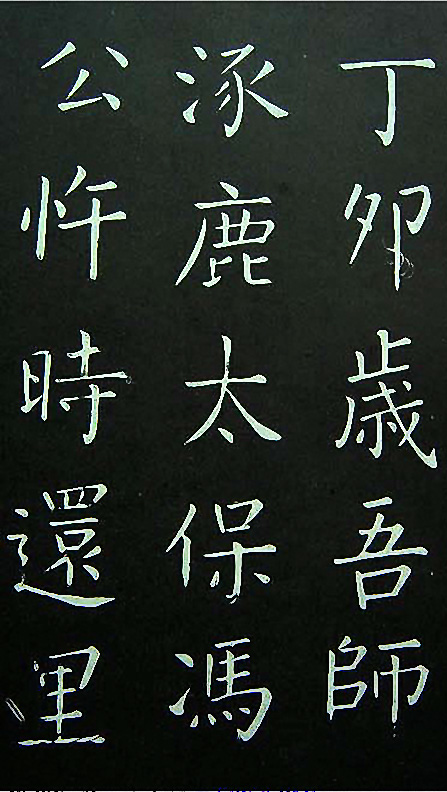 丁卯歲吾師
涿鹿太保馮
公忤時還里